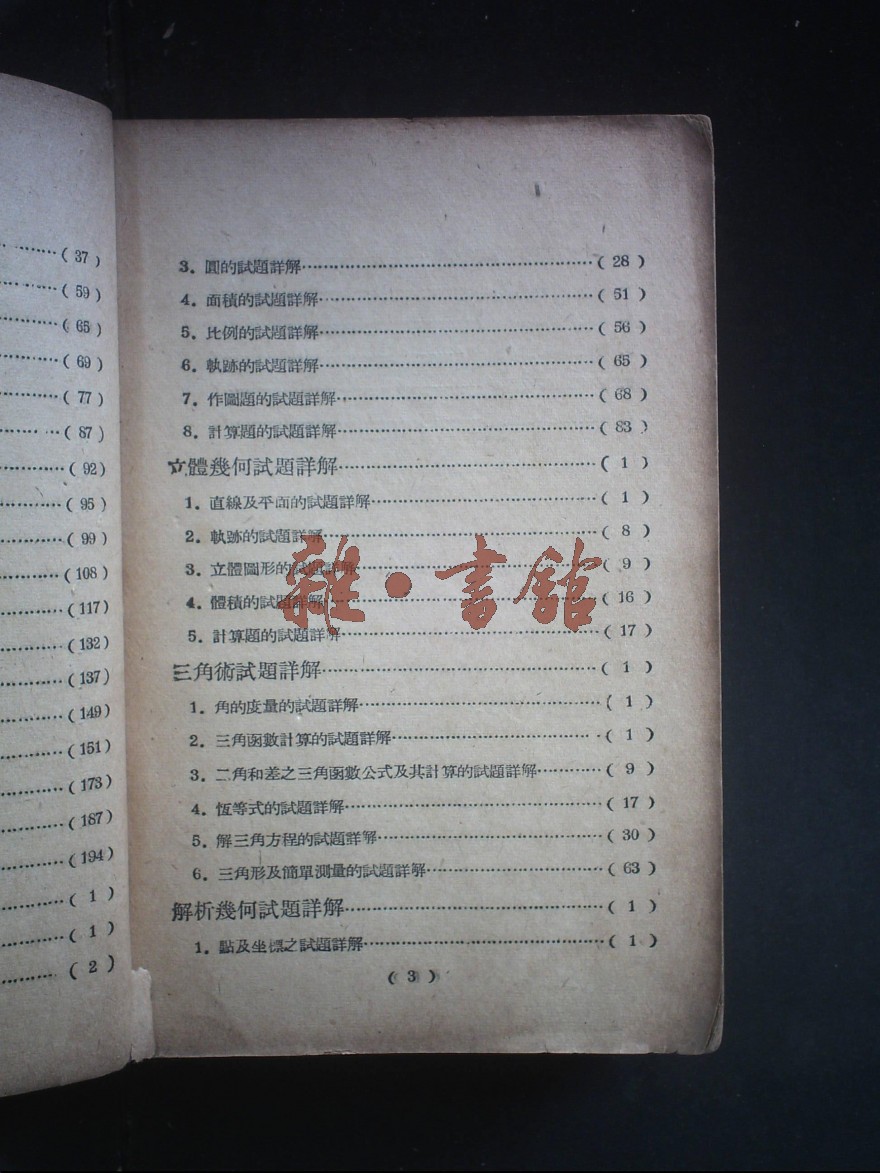 ( 37 )
( 59 )
( 65 )
( 69 )
( 77 )
( 87 )
( 92)
( 95 )
( 99 )
(108 )
(117)
(132)
(137)
(149)
(151)
(173)
(187)
(194)
( 1 )
( 1 )
( 2 )
3. 圓的試題詳解……( 28 )
4. 面積的試題詳解……( 51 )
5. 比例的試題詳解……( 56 )
6. 軌跡的試題詳解……( 65 )
7. 作圖題的試題詳解……( 68 )
8. 計算題的試題詳解……( 83 )
立體幾何試題詳解……( 1 )
1. 直線及平面的試題詳解……( 1 )
2. 軌跡的試題詳解……( 8 )
3. 立體圖形的試題詳解……( 9 )
4. 體積的試題詳解……( 16 )
5. 計算題的試題詳解……( 17 )
三角術試題詳解……( 1 )
1. 角的度量的試題詳解……( 1 )
2. 三角函數計算的試題詳解……( 1 )
3. 二角和差之三角函數公式及其計算的試題詳解……( 9 )
4. 恆等式的試題詳解……( 17 )
5. 解三角方程的試題詳解……( 30 )
6. 三角形及簡單測量的試題詳解……( 63 )
解析幾何試題詳解……( 1 )
1. 點及坐標之試題詳解……( 1 )
( 3 )
雜·書館